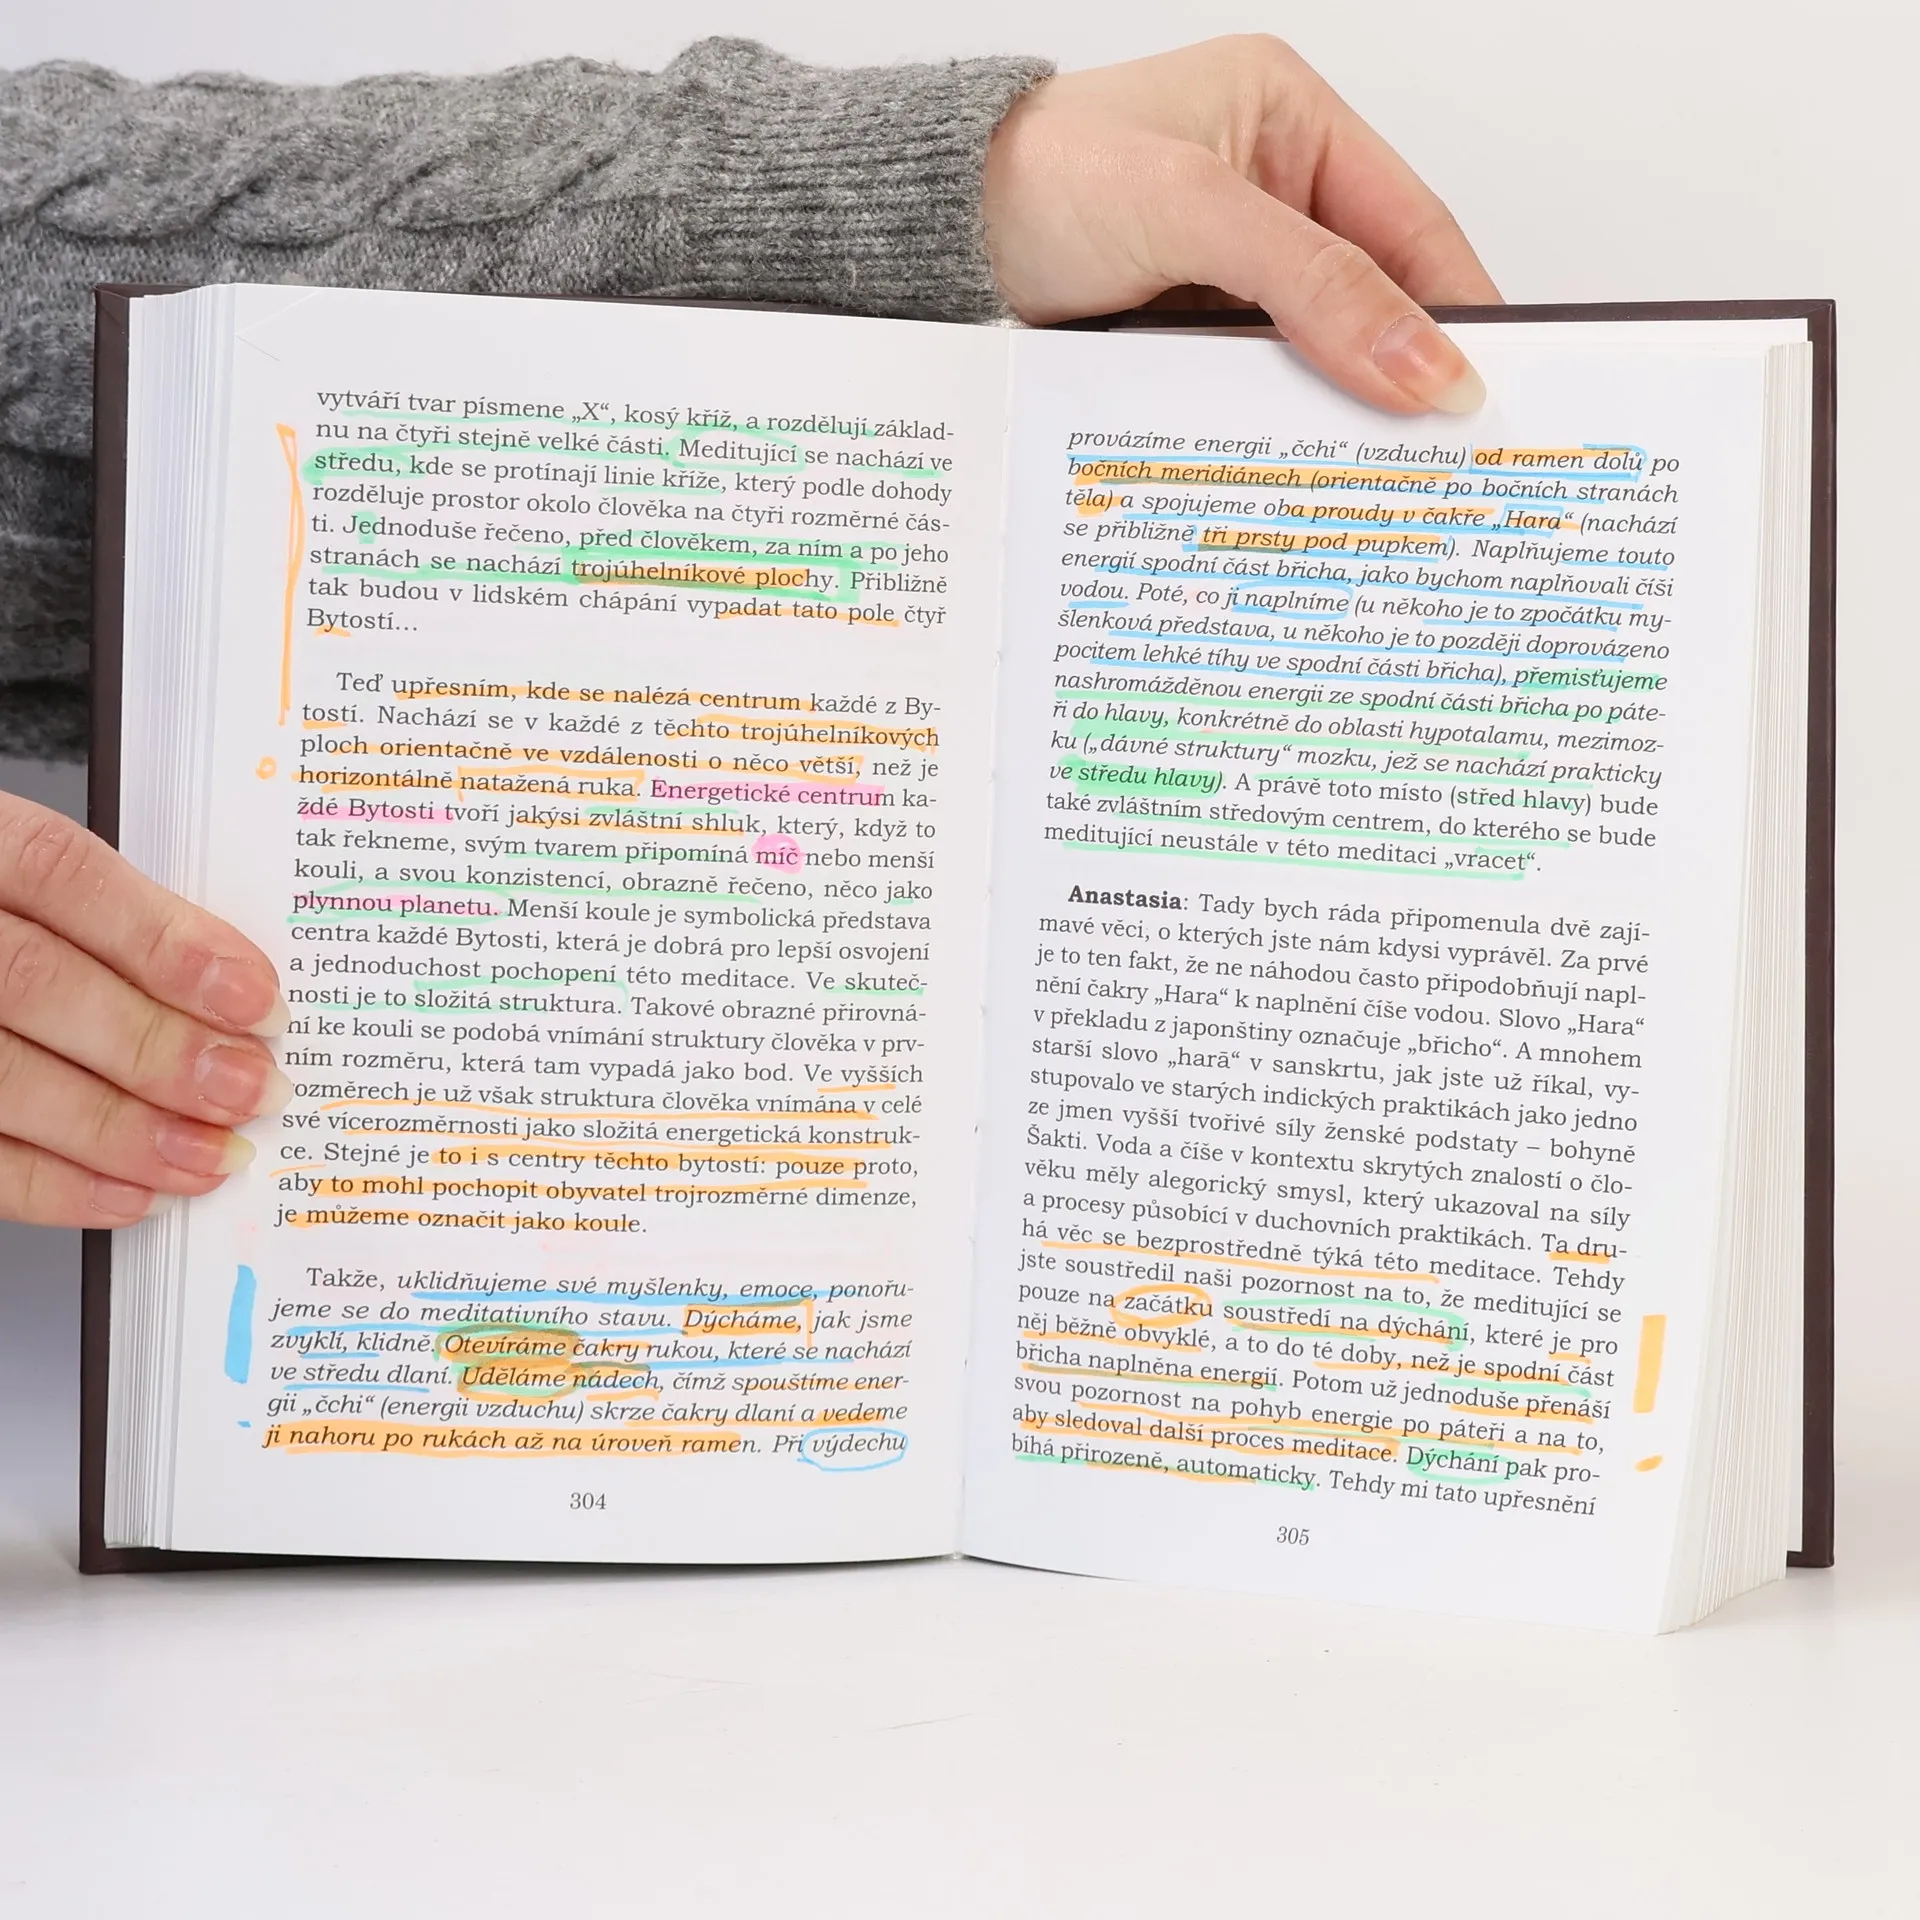 vytváří tvar písmene „X“, kosý kříž, a rozdělují základ-
nu na čtyři stejně velké části. Meditující se nachází ve
středu, kde se protínají linie kříže, který podle dohody
rozděluje prostor okolo člověka na čtyři rozměrné čás-
ti. Jednoduše řečeno, před člověkem, za ním a po jeho
stranách se nachází trojúhelníkové plochy. Přibližně
tak budou v lidském chápání vypadat tato pole čtyř
Bytostí...
Teď upřesním, kde se nalézá centrum každé z By-
tostí. Nachází se v každé z těchto trojúhelníkových
ploch orientačně ve vzdálenosti o něco větší, než je
horizontálně natažená ruka. Energetické centrum ka-
ždé Bytosti tvoří jakýsi zvláštní shluk, který, když to
tak řekneme, svým tvarem připomíná míč nebo menší
kouli, a svou konzistencí, obrazně řečeno, něco jako
plynnou planetu. Menší koule je symbolická představa
centra každé Bytosti, která je dobrá pro lepší osvojení
a jednoduchost pochopení této meditace. Ve skuteč-
nosti je to složitá struktura. Takové obrazné přirovná-
ní ke kouli se podobá vnímání struktury člověka v prv-
ním rozměru, která tam vypadá jako bod. Ve vyšších
rozměrech je už však struktura člověka vnímána v celé
své vícerozměrnosti jako složitá energetická konstruk-
ce. Stejné je to i s centry těchto bytostí: pouze proto,
aby to mohl pochopit obyvatel trojrozměrné dimenze,
je můžeme označit jako koule.
Takže, uklidňujeme své myšlenky, emoce, ponořu-
jeme se do meditativního stavu. Dýcháme, jak jsme
zvyklí, klidně. Otevíráme čakry rukou, které se nachází
ve středu dlaní. Uděláme nádech, čímž spouštíme ener-
gii „čchi“ (energii vzduchu) skrze čakry dlaní a vedeme
ji nahoru po rukách až na úroveň ramen. Při výdechu
304
provázíme energii „čchi“ (vzduchu) od ramen dolů po
bočních meridiánech (orientačně po bočních stranách
těla) a spojujeme oba proudy v čakře „Hara“ (nachází
se přibližně tři prsty pod pupkem). Naplňujeme touto
energií spodní část břicha, jako bychom naplňovali číši
vodou. Poté, co ji naplníme (u někoho je to zpočátku my-
šlenková představa, u někoho je to později doprovázeno
pocitem lehké tíhy ve spodní části břicha), přemisťujeme
nashromážděnou energii ze spodní části břicha po páte-
ři do hlavy, konkrétně do oblasti hypotalamu, mezimoz-
ku („dávné struktury“ mozku, jež se nachází prakticky
ve středu hlavy). A právě toto místo (střed hlavy) bude
také zvláštním středovým centrem, do kterého se bude
meditující neustále v této meditaci „vracet“.
Anastasia: Tady bych ráda připomenula dvě zají-
mavé věci, o kterých jste nám kdysi vyprávěl. Za prvé
je to ten fakt, že ne náhodou často připodobňují napl-
nění čakry „Hara“ k naplnění číše vodou. Slovo „Hara“
v překladu z japonštiny označuje „břicho“. A mnohem
starší slovo „harā“ v sanskrtu, jak jste už říkal, vy-
stupovalo ve starých indických praktikách jako jedno
ze jmen vyšší tvořivé síly ženské podstaty – bohyně
Šakti. Voda a číše v kontextu skrytých znalostí o člo-
věku měly alegorický smysl, který ukazoval na síly
a procesy působící v duchovních praktikách. Ta dru-
há věc se bezprostředně týká této meditace. Tehdy
jste soustředil naši pozornost na to, že meditující se
pouze na začátku soustředí na dýchání, které je pro
něj běžně obvyklé, a to do té doby, než je spodní část
břicha naplněna energií. Potom už jednoduše přenáší
svou pozornost na pohyb energie po páteři a na to,
aby sledoval další proces meditace. Dýchání pak pro-
bíhá přirozeně, automaticky. Tehdy mi tato upřesnění
305